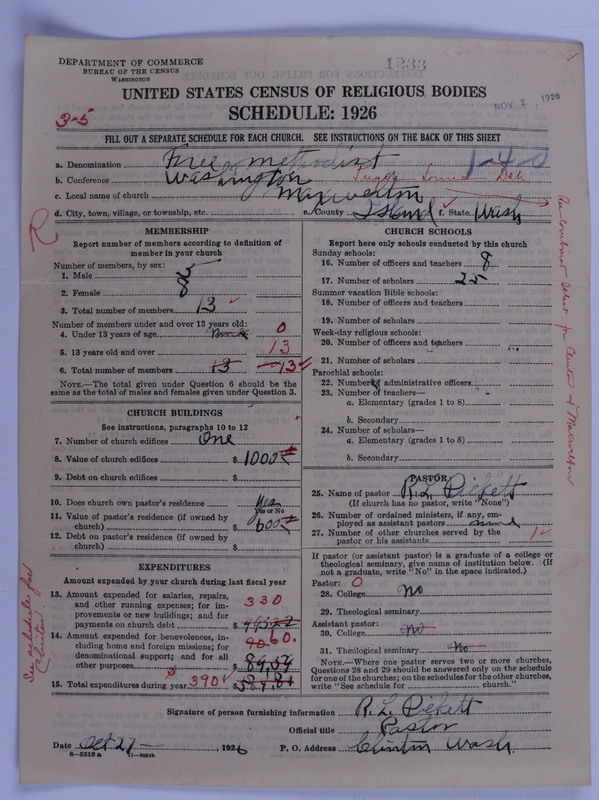 DEPARTMENT OF COMMERCE
BUREAU OF THE CENSUS
WASHINGTON
1233
UNITED STATES CENSUS OF RELIGIOUS BODIES
SCHEDULE: 1926
NOV 2 1926
3-5
FILL OUT A SEPARATE SCHEDULE FOR EACH CHURCH. SEE INSTRUCTIONS ON THE BACK OF THIS SHEET
a. Denomination Free methodist 1-4-0
b. Conference Washington
c. Local name of church Maxwelton
d. City, town, village, or township, etc. e. County Island f. State Wash
MEMBERSHIP
Report number of members according to definition of member in your church
Number of members, by sex:
1. Male 5
2. Female 8
3. Total number of members 13
Number of members under and over 13 years old:
4. Under 13 years of age 0
5. 13 years old and over 13
6. Total number of members 13 13
NOTE.—The total given under Question 6 should be the same as the total of males and females given under Question 3.
CHURCH BUILDINGS
See instructions, paragraphs 10 to 12
7. Number of church edifices One
8. Value of church edifices $ 1000
9. Debt on church edifices $
10. Does church own pastor's residence Yes
Yes or No
11. Value of pastor's residence (if owned by church) $ 600
12. Debt on pastor's residence (if owned by church) $
EXPENDITURES
Amount expended by your church during last fiscal year
13. Amount expended for salaries, repairs, and other running expenses; for improvements or new buildings; and for payments on church debt $ 330
14. Amount expended for benevolences, including home and foreign missions; for denominational support; and for all other purposes $ 60.
15. Total expenditures during year 390 $
CHURCH SCHOOLS
Report here only schools conducted by this church
Sunday schools:
16. Number of officers and teachers 8
17. Number of scholars 25
Summer vacation Bible schools:
18. Number of officers and teachers
19. Number of scholars
Week-day religious schools:
20. Number of officers and teachers
21. Number of scholars
Parochial schools:
22. Number of administrative officers
23. Number of teachers—
a. Elementary (grades 1 to 8)
b. Secondary
24. Number of scholars—
a. Elementary (grades 1 to 8)
b. Secondary
PASTOR
25. Name of pastor R. L. Pickett
(If church has no pastor, write "None")
26. Number of ordained ministers, if any, employed as assistant pastors
27. Number of other churches served by the pastor or his assistants 1
If pastor (or assistant pastor) is a graduate of a college or theological seminary, give name of institution below. (If not a graduate, write "No" in the space indicated.)
Pastor: 0
28. College No
29. Theological seminary
Assistant pastor:
30. College No
31. Theological seminary No
NOTE.—Where one pastor serves two or more churches, Questions 28 and 29 should be answered only on the schedule for one of the churches; on the schedules for the other churches, write "See schedule for church."
See schedule for Clinton
Signature of person furnishing information R. L. Pickett
Official title Pastor
Date Oct 27, 1926 P. O. Address Clinton Wash.
8-5518 a